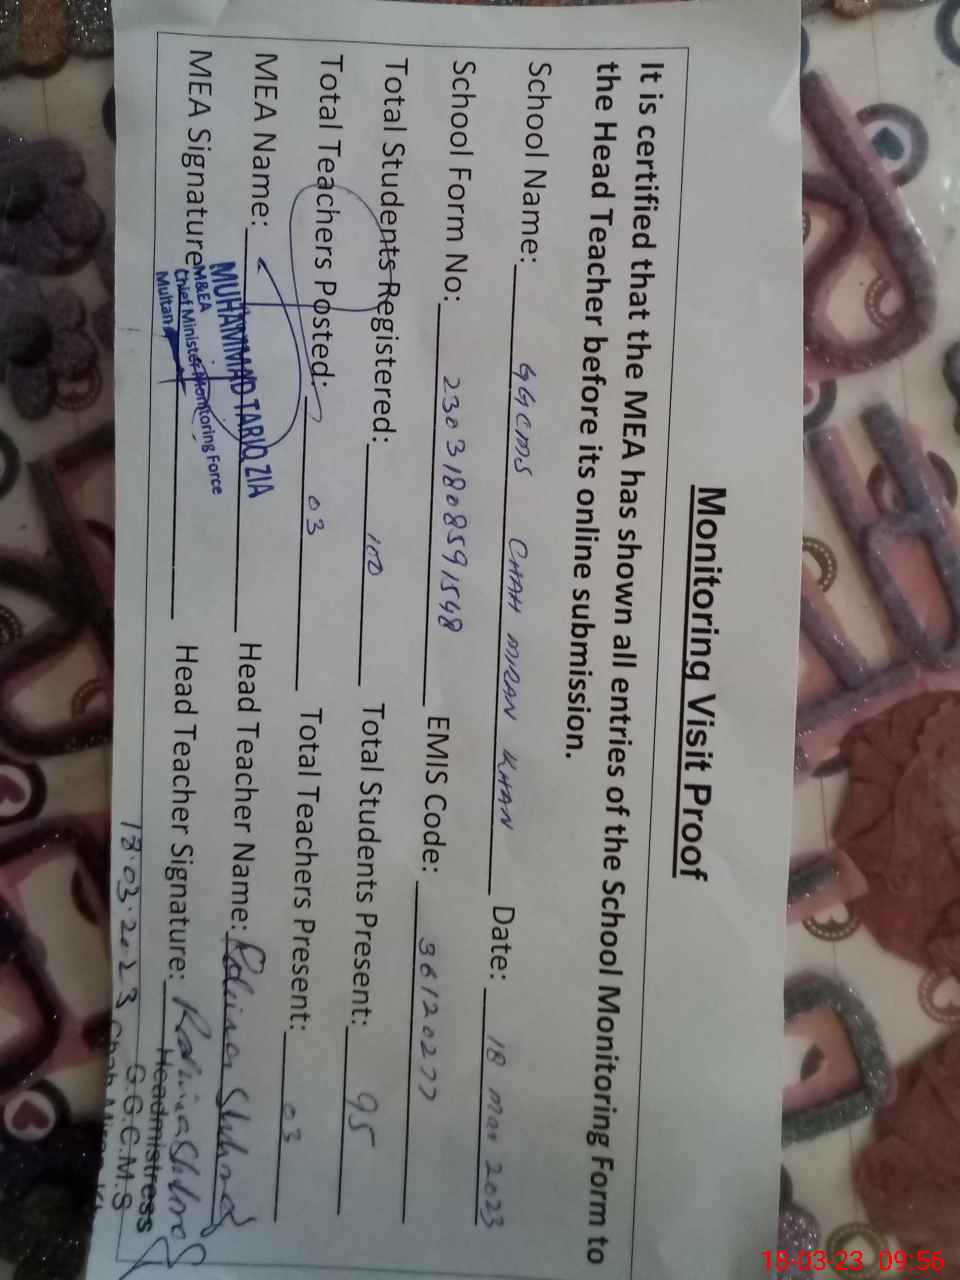 Monitoring Visit Proof
It is certified that the MEA has shown all entries of the School Monitoring Form to
the Head Teacher before its online submission.
School Name: GGCMS CHAH MIRAN KHAN Date: 18 Mar 2023
School Form No: 23031808591548 EMIS Code: 36120277
Total Students Registered: 100 Total Students Present: 95
Total Teachers Posted: 03 Total Teachers Present: 03
MEA Name: MUHAMMAD TARIQ ZIA Head Teacher Name:
MEA Signature Head Teacher Signature:
M&EA
Chief Minister Monitoring Force
Multan
Headmistress
G.G.C.M.S
18.03.2023 Chah
18-03-23 09:56